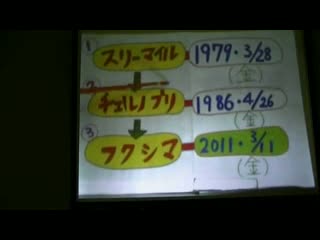 1 スリーマイル 1979・3/28
(金)
2 チェルノブリ 1986・4/26
(金)
3 フクシマ 2011・3/11
(金)